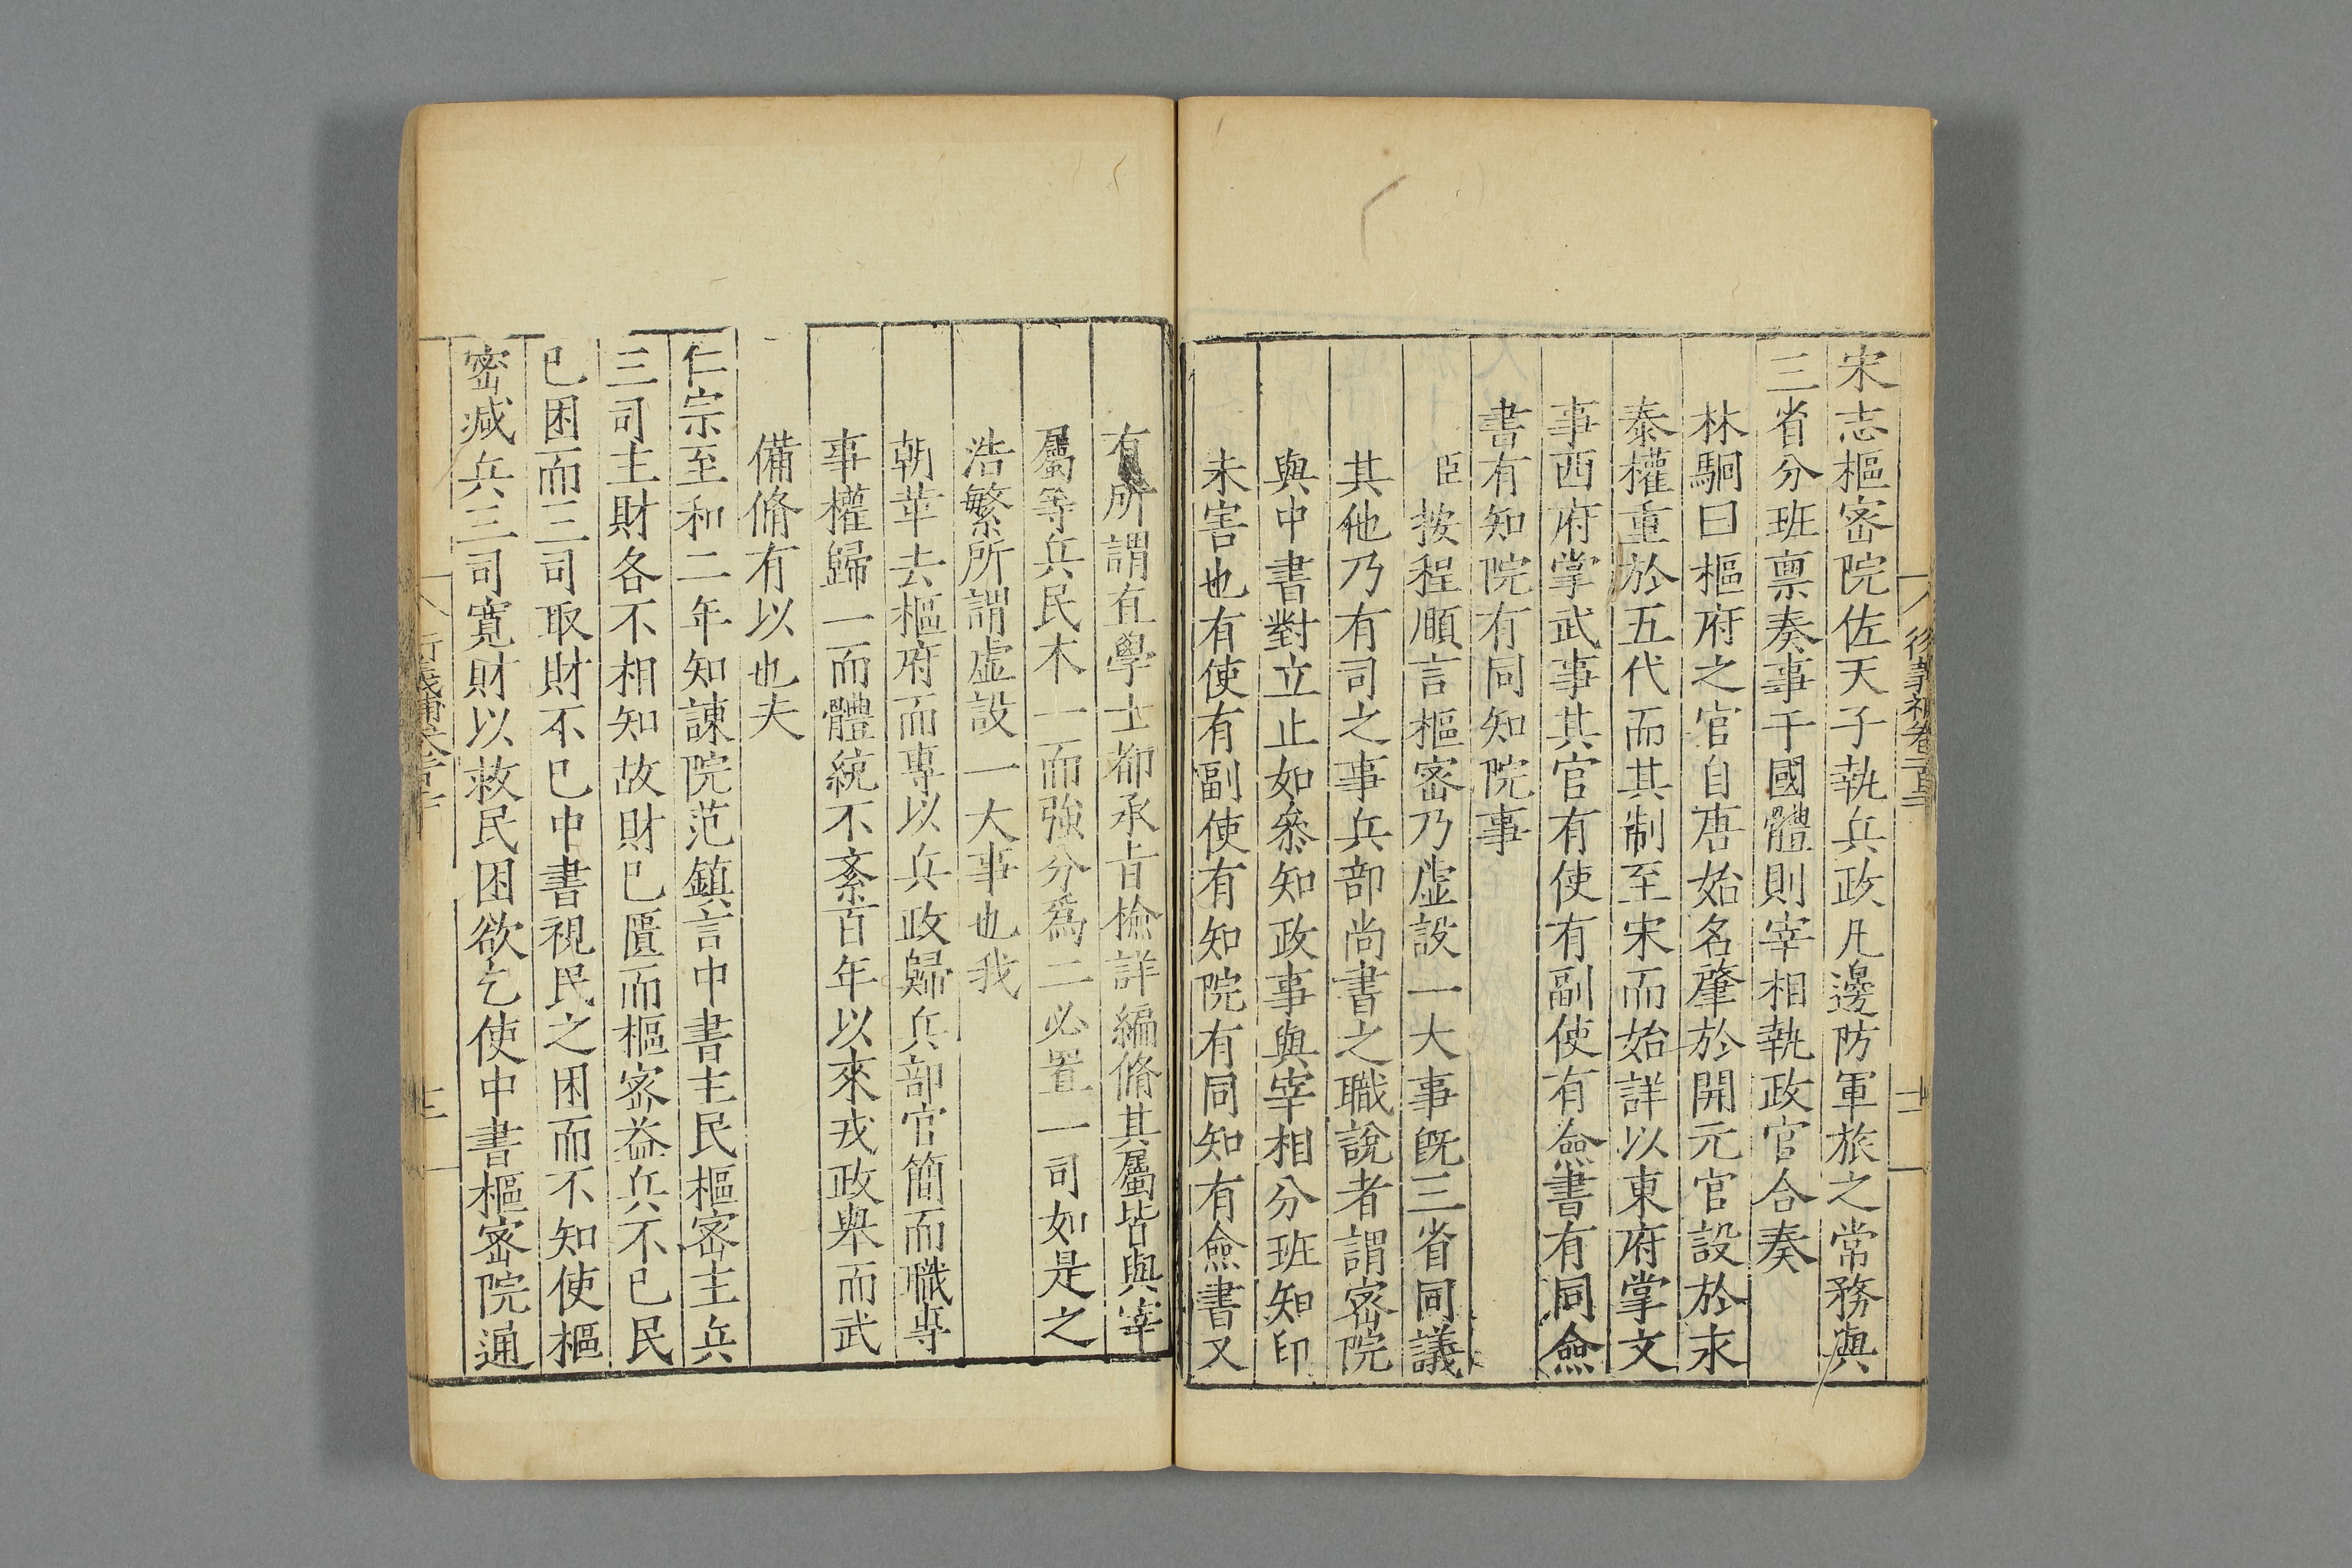 宋志樞密院佐天子執兵政凡邊防軍旅之常務與
三省分班禀奏事干國體則宰相執政官合奏
林駉曰樞府之官自唐始名肇於開元官設於永
泰權重於五代而其制至宋而始詳以東府掌文
事西府掌武事其官有使有副使有僉書有同僉
書有知院有同知院事
臣按程頤言樞密乃虛設一大事旣三省同議
其他乃有司之事兵部尚書之職說者謂密院
與中書對立止如叅知政事與宰相分班知印
未害也有使有副使有知院有同知有僉書又
有所謂直學士都承旨檢詳編脩其屬皆與宰
屬等兵民本一而強分爲二必置一司如是之
浩繁所謂虛設一大事也我
朝革去樞府而專以兵政歸兵部官簡而職專
事權歸一而體統不紊百年以來戎政舉而武
備脩有以也夫
仁宗至和二年知諫院范鎮言中書主民樞密主兵
三司主財各不相知故財已匱而樞密益兵不已民
已困而三司取財不已中書視民之困而不知使樞
密减兵三司寬財以救民困欲乞使中書樞密院通